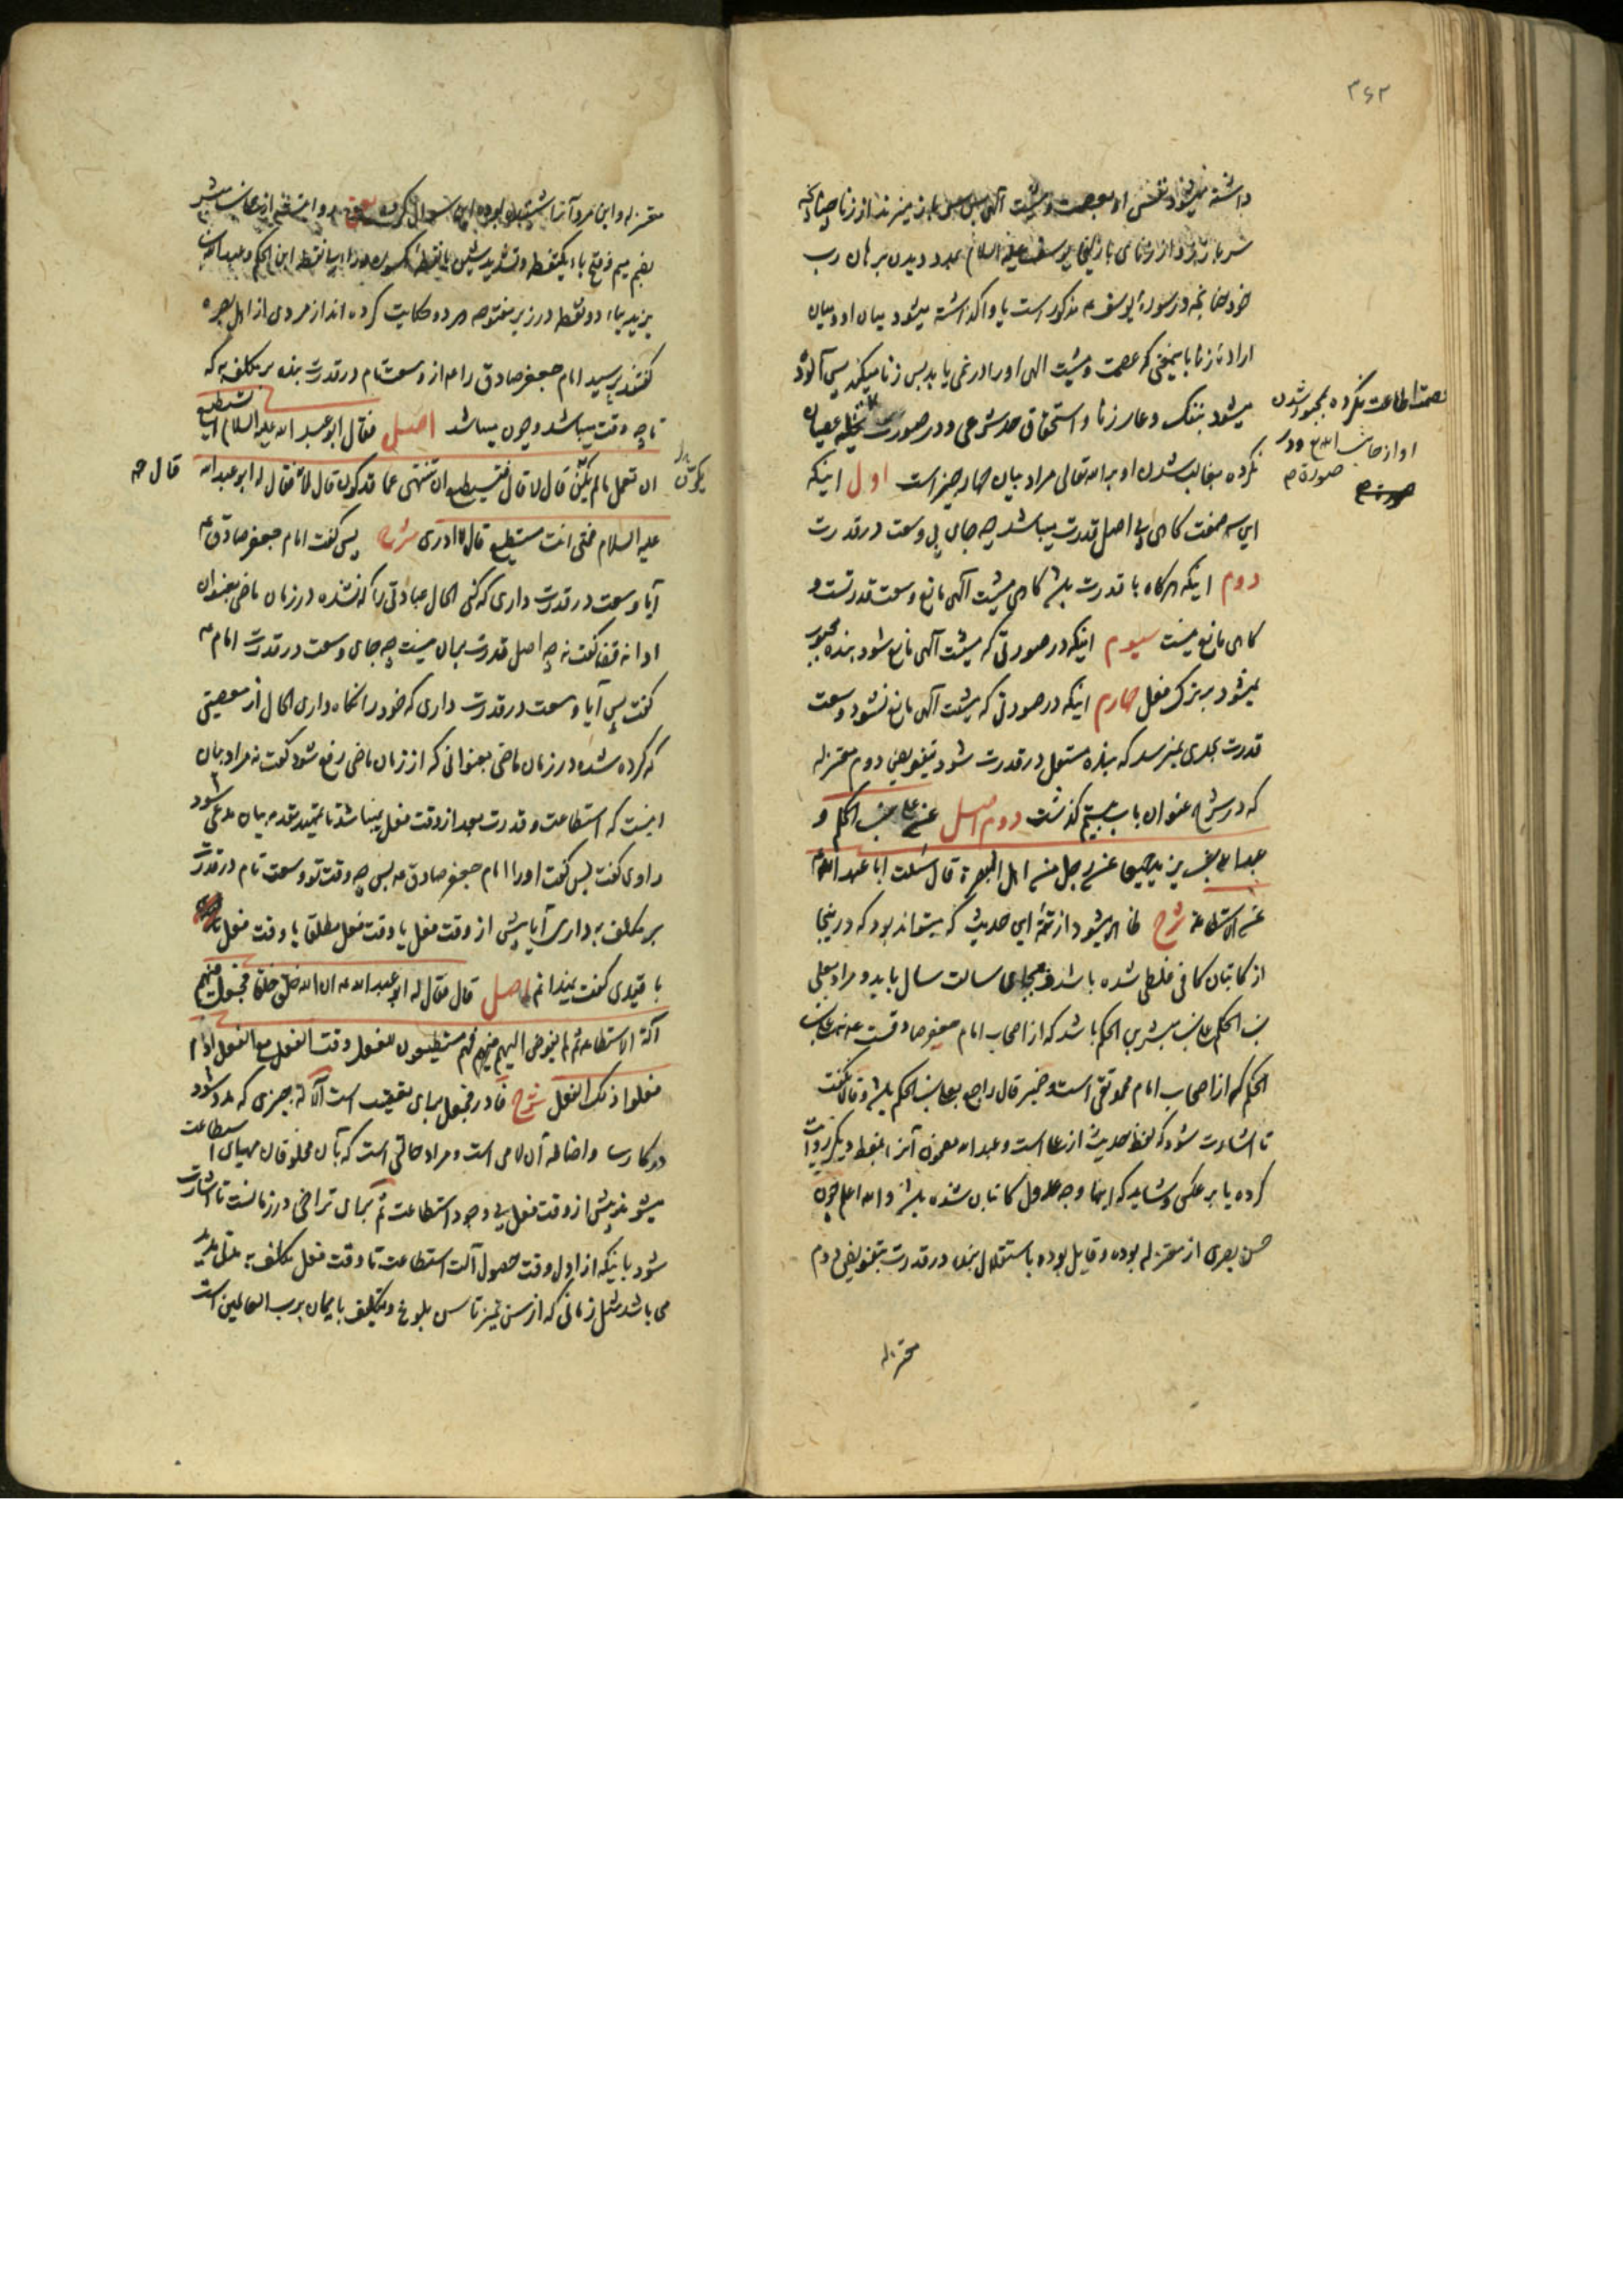 ۳۶۲
داشته میشود نفس او بعصمت و مشیت الهی پس باز میزند از زنا چنانکه
سر باز زد از زنای با زلیخا یوسف علیه السلام بمدد دیدن برهان رب
خود چنانچه در سورهٔ یوسف ع مذکور است یا واگذاشته میشود میان او و میان
ارادهٔ زنا باینمعنی که عصمت و مشیت الهی او را در نمی‌یابد پس زنا میکند پس آلوده
میشود بننک و عار زنا و استحقاق حد شرعی و در صورت تخلیه عصیان
نکرده بغالب شدن او بر الله تعالی مراد بیان چهار چیز است اول اینکه
این سه صفت کاهی بی اصل قدرت میباشد چه جای بی وسعت در قدرت
دوم اینکه هرگاه با قدرت باشد کاهی مشیت الهی مانع وسعت قدرتست و
کاهی مانع نیست سیوم اینکه در صورتی که مشیت الهی مانع شود بنده مجبور
نمیشود بر ترک فعل چهارم اینکه در صورتی که مشیت الهی مانع نشود وسعت
قدرت بحدی نمیرسد که بنده مستقل در قدرت شود بتفویض دوم معتزله
که در شرح عنوان باب بیستم گذشت دوم اصل عن علی بن الحکم و
عبد الله بن یزید جمیعا عن رجل من اهل البصرة قال سئلت ابا عبد الله ع
عن الاستطاعة شرح ظاهر میشود از تتمهٔ این حدیث که میتواند بود که در اینجا
از کاتبان کافی غلطی شده باشد و بجای سالت سال باید و مراد بعلی
بن الحکم علی بن مبشر بن الحکم باشد که از اصحاب امام جعفر صادقست ع نه علی بن
الحکم که از اصحاب امام محمد تقی است و ضمیر قال راجع بعلی بن الحکم باشد و قالا نکفت
تا اشارت شود که لفظ حدیث از علی است و عبد الله مضمون آنرا بلفظ دیگر روایت
کرده یا بر عکس و شاید که اینها وجه عدول کاتبان شده باشد و الله اعلم چون
حسن بصری از معتزله بوده و قایل بوده باستقلال بنده در قدرت بتفویض دوم
معتزله
بعصمت اطاعت نکرده بمجبور شدن
او از جانب الله تع و در
صورة م
معتزله و این مرد آنرا شنیده بوده این سوال کرده یعنی و از علی بن مبشر
بضم میم و فتح باء یکنقطه و تشدید شین با نقطه مکسوره و راء بی نقطه ابن الحکم و عبد الله بن
یزید بیاء دو نقطه در زیر مفتوحه هر دو حکایت کرده اند از مردی از اهل بصره
گفتند پرسید امام جعفر صادق را ع از وسعت تام در قدرت بنده بر مکلف به که
تا چه وقت میباشد و چون میباشد اصل فقال ابو عبد الله علیه السلام اتستطیع
ان تعمل ما لم یکوّن قال لا قال فتستطیع ان تنتهی عما قد کون قال لا قال فقال له ابو عبد الله
علیه السلام فمتی انت مستطیع قال لا ادری شرح پس گفت امام جعفر صادق ع
آیا وسعت در قدرت داری که کنی الحال عبادتی را که نشده در زمان ماضی بعنوان
ادا نه قضا گفت نه چه اصل قدرت بر آن نیست چه جای وسعت در قدرت امام ع
گفت پس آیا وسعت در قدرت داری که خود را نگاه داری الحال از معصیتی
که کرده شده در زمان ماضی بعنوانی که از زمان ماضی رفع شود گفت نه مراد بیان
اینست که استطاعت و قدرت بعد از وقت فعل نمیباشد تا تمهید مقدمه بیان مدعی شود
راوی گفت پس گفت او را امام جعفر صادق ع پس چه وقت تو وسعت تام در قدرت
بر مکلف به داری آیا پیش از وقت فعل یا وقت فعل مطلقا یا وقت فعل
با قیدی گفت نمیدانم اصل قال فقال له ابو عبد الله ع ان الله خلق خلقا فجعل فیهم
آلة الاستطاعة ثم لم یفوض الیهم فهم مستطیعون للفعل وقت الفعل مع الفعل اذا
فعلوا ذلک الفعل شرح فا در فجعل برای تعقیب است آلة چیزی که مدد شود
در کاری و اضافه آن لامی است و مراد حالتی است که بآن مخلوقان مهیای استطاعت
میشوند پیش از وقت فعل بی وجود استطاعت ثم برای تراخی در زمانست تا اشارت
شود باینکه از اول وقت حصول آلت استطاعت تا وقت فعل مکلف به مدتی مدید
می باشد مثل زمانی که از سن تمیز تا سن بلوغ و تکلیف بایمان برب العالمین است
یکوّن
قال حم